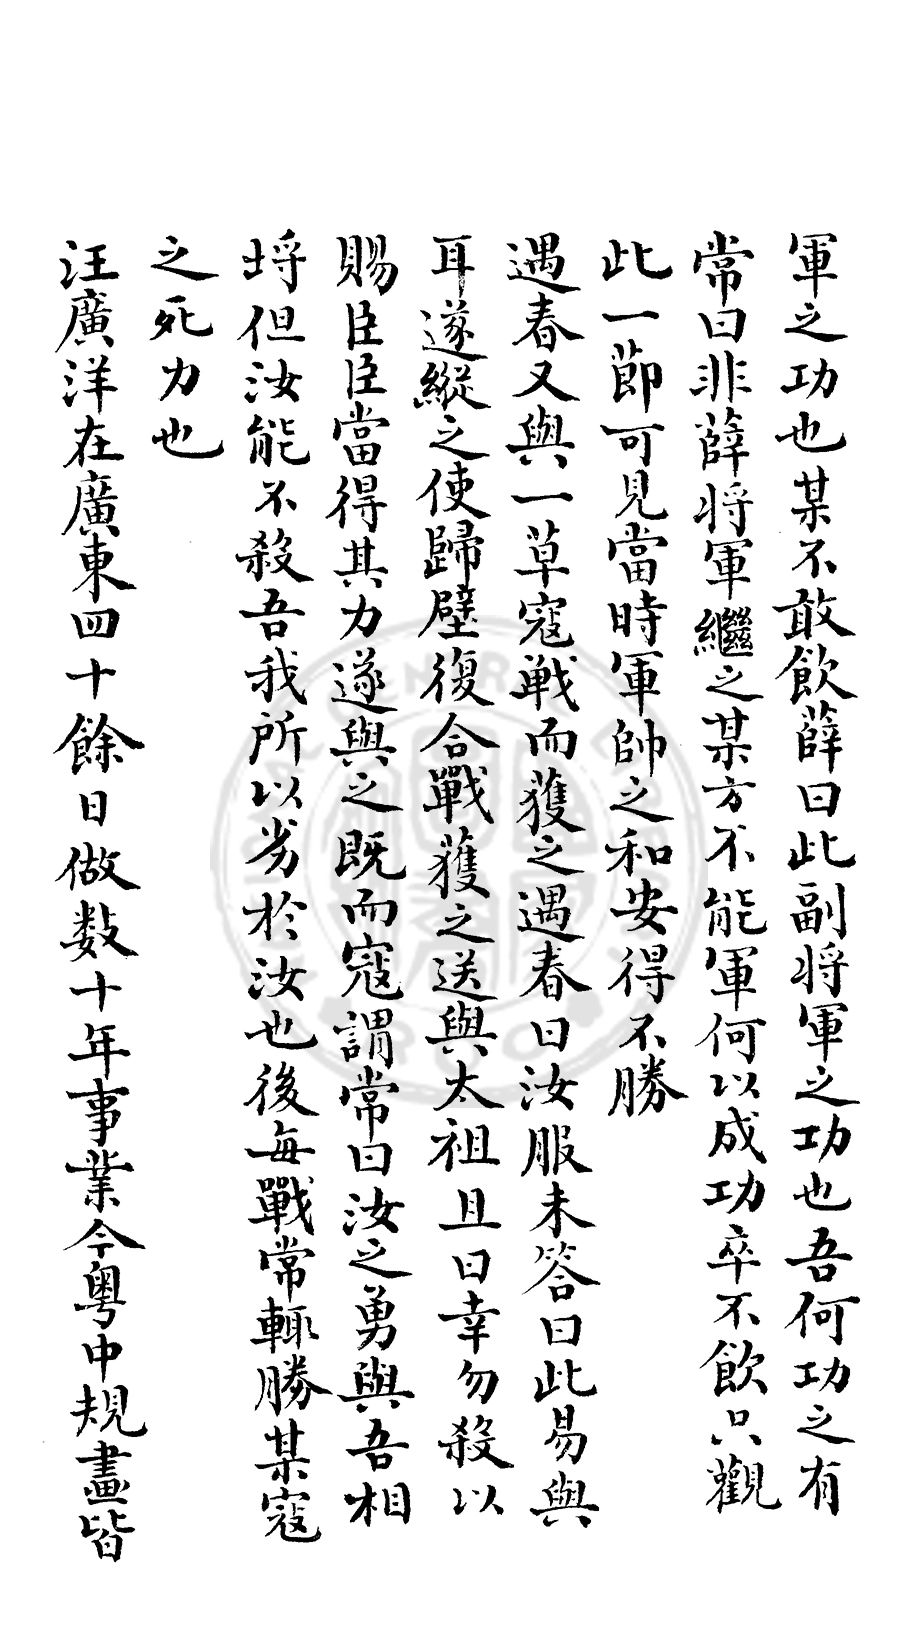 軍之功也某不敢飲薛曰此副将軍之功也吾何功之有
常曰非薛将軍繼之某方不能軍何以成功卒不飲只觀
此一節可見當時軍帥之和安得不勝
遇春又與一草寇戰而獲之遇春曰汝服未答曰此易與
耳遂縱之使歸壁復合戰獲之送與太祖且曰幸勿殺以
賜臣臣當得其力遂與之既而寇謂常曰汝之勇與吾相
埒但汝能不殺吾我所以劣於汝也後每戰常輙勝某寇
之死力也
汪廣洋在廣東四十餘日做数十年事業今粵中規畫皆